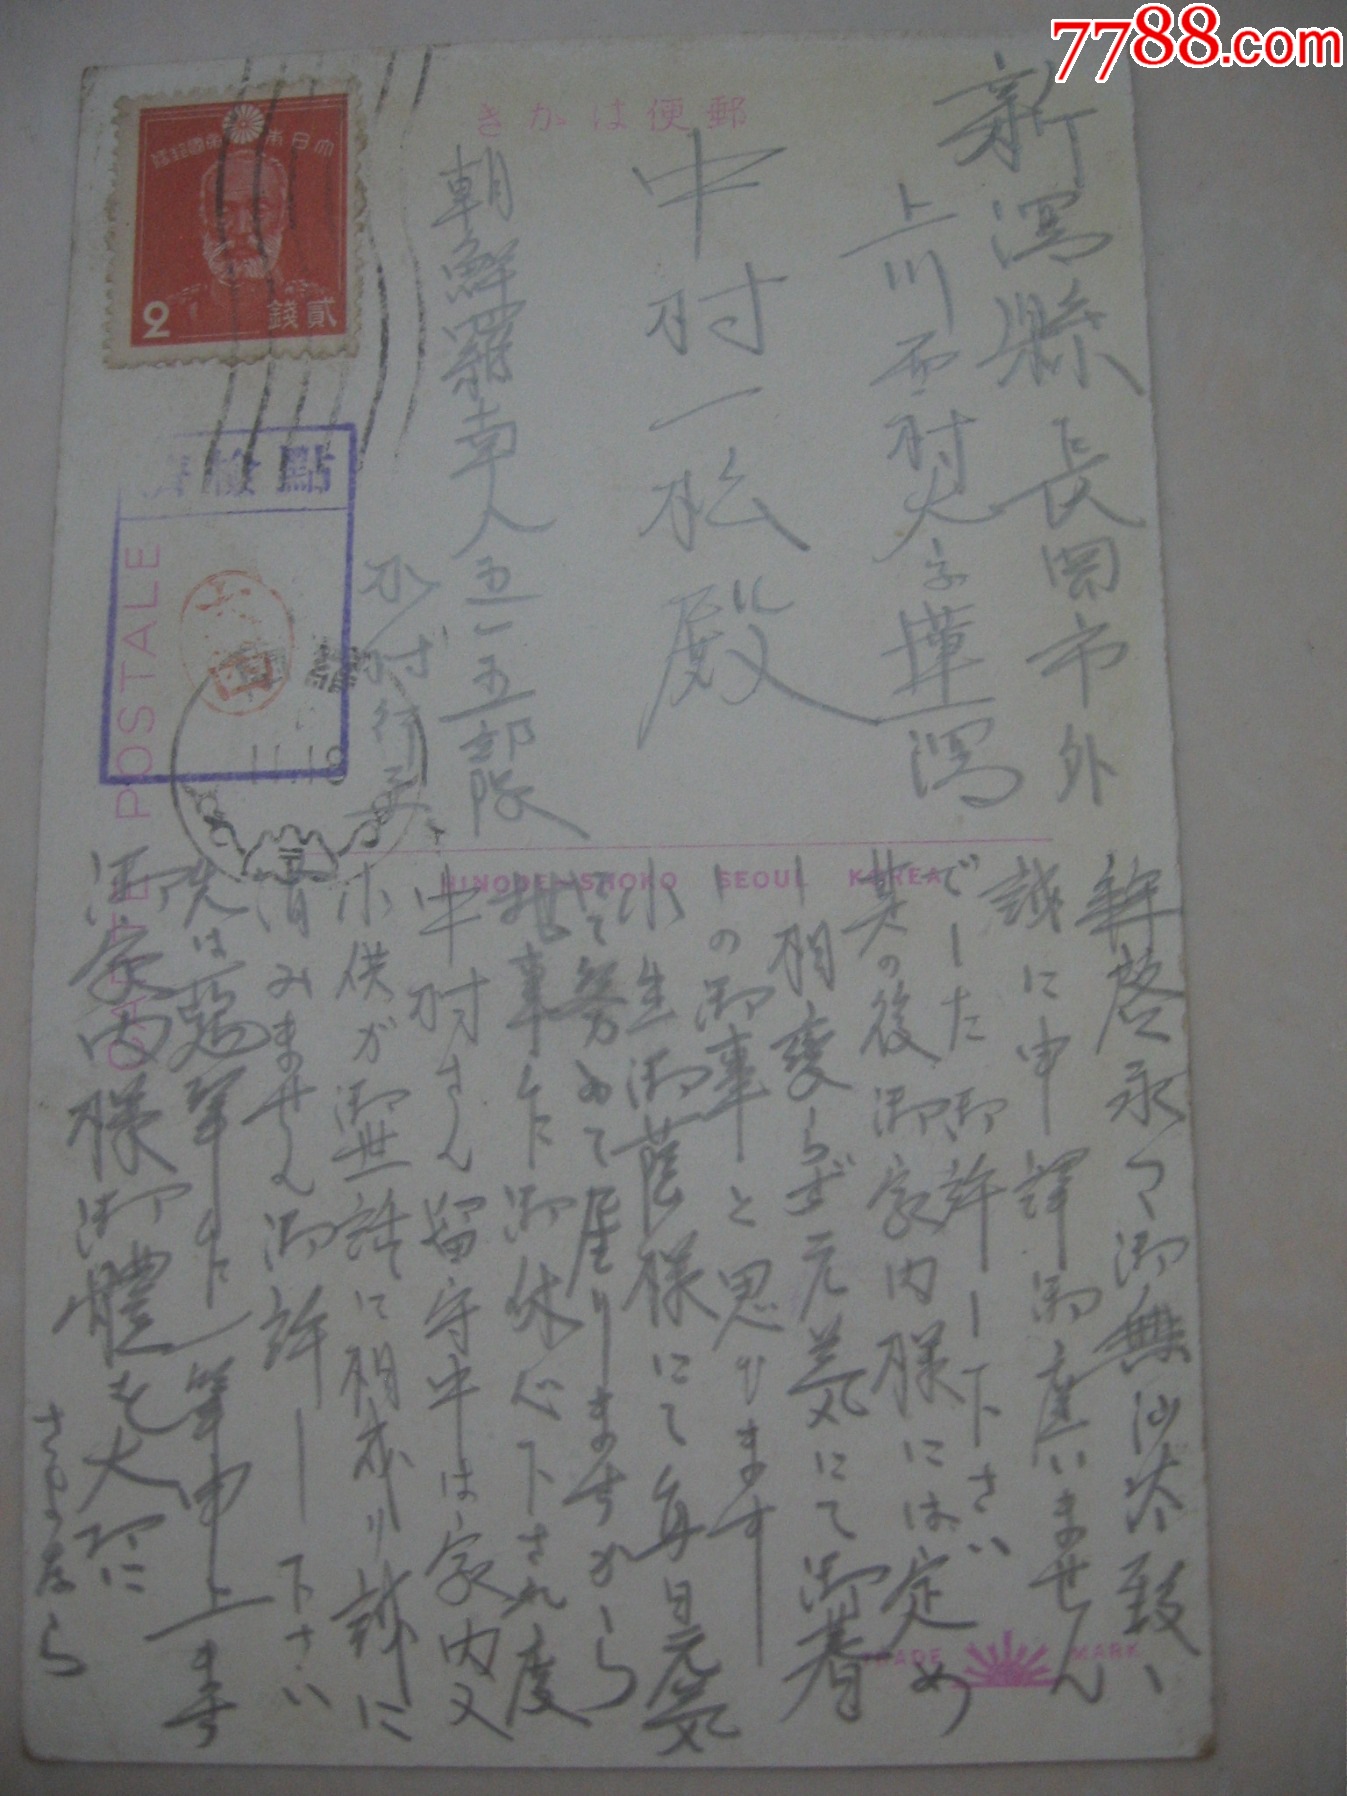 7788.com
郵便はがき
大日本帝國郵便
2
貳錢
新潟縣長岡市外
上川西村大字蓮潟
中村一松殿
朝鮮羅南人五一五部隊
點檢濟
CARTE POSTALE
HINODE-SHOKO SEOUL KOREA
拝啓永々御無沙汰致い
誠に申譯御座いません
でした御許し下さい
其の後御家内様には定め
し相變らず元気にて御暮
しの御事と思ひます
小生御蔭様にて毎日元気
にて努めて居りますから
他事乍御休心下され度
中村さん留守中は家内又
小供が御世話に相成り誠に
済みません御許し下さい
先は乱筆乍ら一筆申上ます
御家内様御體を大切に
さようなら
TRADE MARK